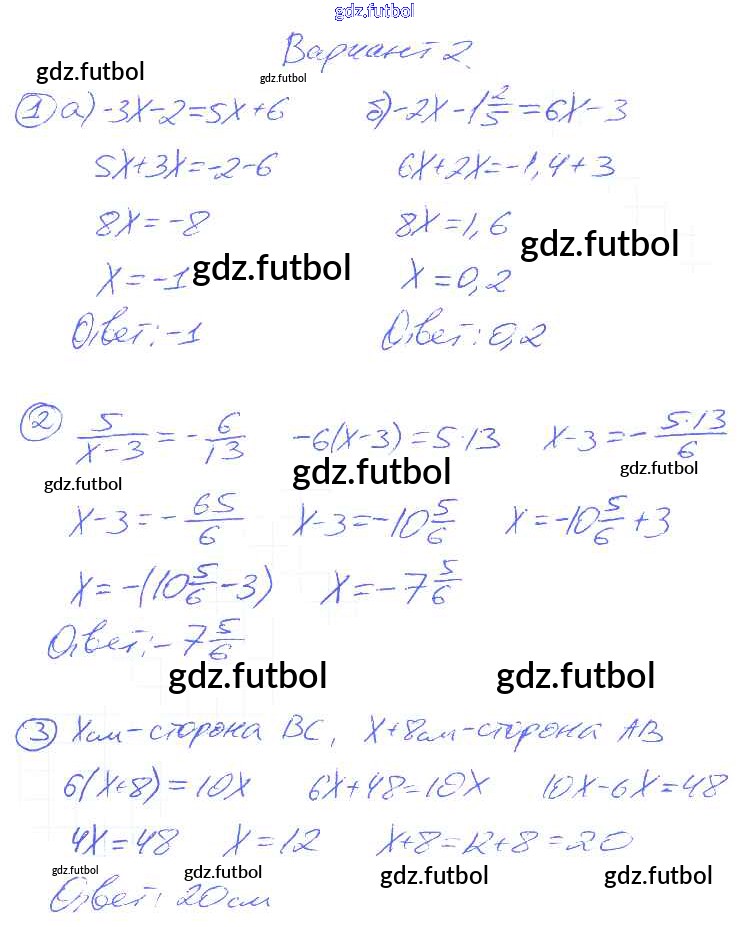 gdz.futbol
Вариант 2.
gdz.futbol gdz.futbol
① а) -3x-2=5x+6 б) -2x-1 2/5 =6x-3
5x+3x=-2-6 6x+2x=-1,4+3
8x=-8 8x=1,6
gdz.futbol
x=-1 gdz.futbol x=0,2
Ответ: -1 Ответ: 0,2
② 5/(x-3) = -6/13 -6(x-3)=5·13 x-3=-5·13/6
gdz.futbol gdz.futbol gdz.futbol
x-3=-65/6 x-3=-10 5/6 x=-10 5/6 +3
x=-(10 5/6 -3) x=-7 5/6
Ответ: -7 5/6
gdz.futbol gdz.futbol
③ xсм-сторона BC, x+8см-сторона AB
6(x+8)=10x 6x+48=10x 10x-6x=48
4x=48 x=12 x+8=12+8=20
gdz.futbol gdz.futbol gdz.futbol gdz.futbol
Ответ: 20см